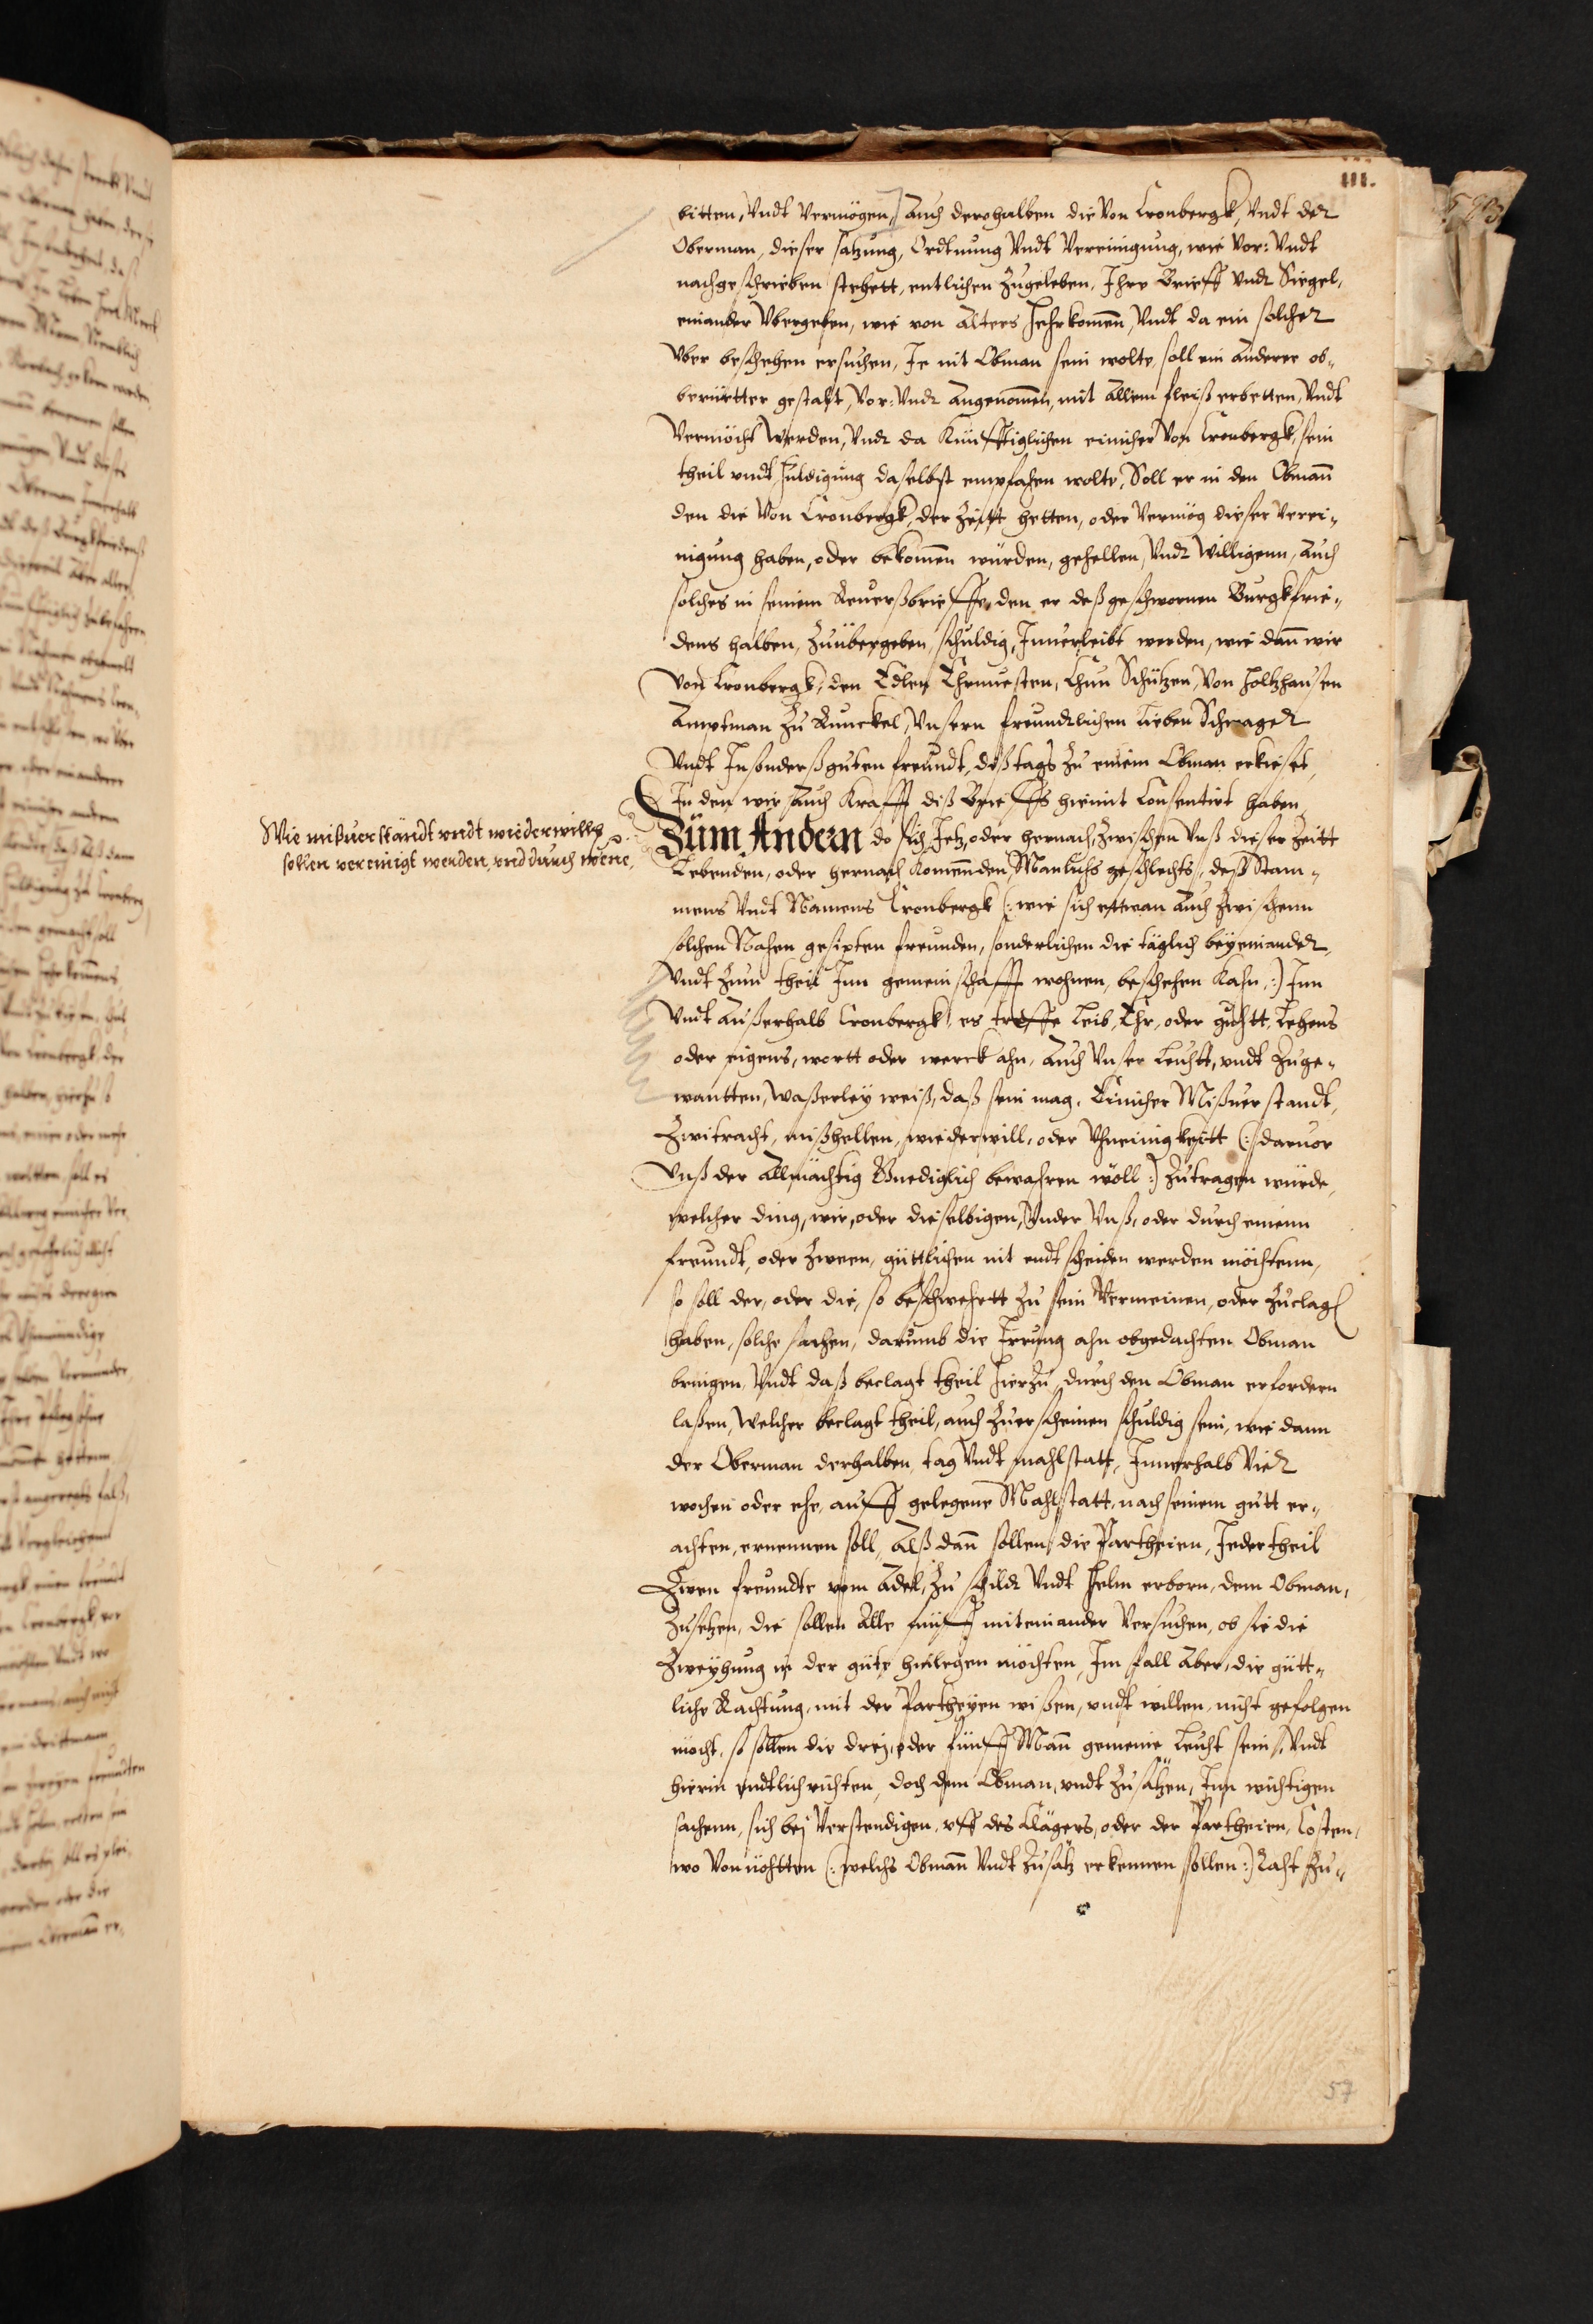 III.
bitten, Vndt Vermögen, Auch derohalben die Von Cronbergk, Vndt der
Oberman, dieser satzung, Ordtnung Vndt Vereinigung, wie Vor: Vndt
nachgeschrieben stehett, entlichen Zugeleben, Ihre Brieff Vndt Siegel,
einander Vbergeben, wie von Alters Hehrkomen, Vndt da ein solcher
Vber beschehen ersuchen, Je nit Obman sein wolte, soll ein Anderer ob„
berürtter gestalt, Vor: Vndt Angenomen, mit Allem fleiß erbetten, Vndt
Vermöcht Werden, Vndt da Künfftiglichen einicher Von Cronbergk, sein
theil vndt Huldigung daselbst empfahen wolte, Soll er in den Obman
den die Von Cronbergk, der Zeitt hetten, oder Vermög dieser Verei„
nigung haben, oder bekomen würden, gehellen, Vndt Willigenn, Auch
solches in seinem Reuerßbrieffe, den er deß geschwornen Burgkfrie„
dens halben, Zuübergeben, schuldig, Innerleibt werden, wie dan wir
Von Cronbergk, den Edlen Ehrnuesten, Chun Schützen, Von Holtzhausen
Amptman Zu Runckel, Vnsern freundtlichen Lieben Schwager
Vndt Insonderß guten freundt, diß tags Zu einem Obman erkieset,
In den wir Auch Krafft diß Brieffs hiemit Consentirt haben,
Wie mißuerständt vndt wiederwillg
sollen vereinigt werden, vnd durch wene,
Züm Andern do sich Jetz, oder hernach, Zwischen Vnß dieser Zeitt
Lebenden, oder hernach Komenden Manlichs geschlechts, deß Stam„
mens Vndt Namens Cronbergk (: wie sich ettwan Auch Zwischenn
solchen Nahen gesipten freunden, sonderlichen die täglich beyeinander,
Vndt Zum theil Inn gemeinschafft wohnen, beschehen Kahn :) Inn
Vndt Außerhalb Cronbergk, es treffe Leib, Ehr, oder guhtt, Lehens
oder eigens, wortt oder werck ahn, Auch Vnser Leuhtt, vndt Zuge„
wantten, Waßerley weiß, daß sein mag, Einicher Mißuerstandt,
Zwitracht, mißhellen, wiederwill, oder Vhneinigkeitt (: daruor
Vnß der Allmächtig Gnediglich bewahren wöll :) Zutragen würde,
welcher ding, wir, oder dieselbigen, Vnder Vnß, oder durch einenn
freundt, oder Zween, güttlichen nit endtscheiden werden möchtenn,
so soll der, oder die, so beschwehrtt Zu sein Vermeinen, oder Zuclag
haben, solche sachen, darumb die Irrung ahn obgedachten Obman
bringen, Vndt daß beclagt theil Hierzu durch den Obman erfordern
laßen, Welcher beclagt theil, auch Zuerscheinen schuldig sein, wie dann
der Oberman derhalben, tag Vndt mahlstatt, Innerhalb Vier
wochen oder ehe, auff gelegene Mahlstatt, nach seinem gutt er„
achten, ernennen soll, Alß dan sollen die Partheien, Jeder theil
Zwen freundte vom Adel, Zu schildt Vndt Helm erborn, dem Obman,
Zusetzen, die sollen Alle fünff miteinander Versuchen, ob sie die
Zweyhung in der güte hinlegen möchten, Im fall Aber, die gütt„
liche Rachtung, mit der Partheyen wißen, vndt willen, nicht gefolgen
möcht, so sollen die drey, oder fünff Man gemeine Leucht sein, Vndt
hierin endtlich richten, doch dem Obman, vndt Zusätzen, Inn wichtigen
sachenn, sich bej Verstendigen, vff des Clägers, oder der Partheien, Costen,
wo Von nöhtten (: welchs Obman Vndt Zusätz erkennen sollen :) Raht Zu„
57